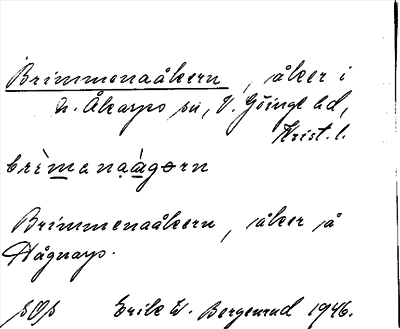 Brimmenaåkern, åker i
N. Åkarps sn, V. Göinge hd,
Krist. l.
brìmenaàgørn
Brimmenaåkern, åker på
Hågnarp.
Erik W. Bergenrud 1946.